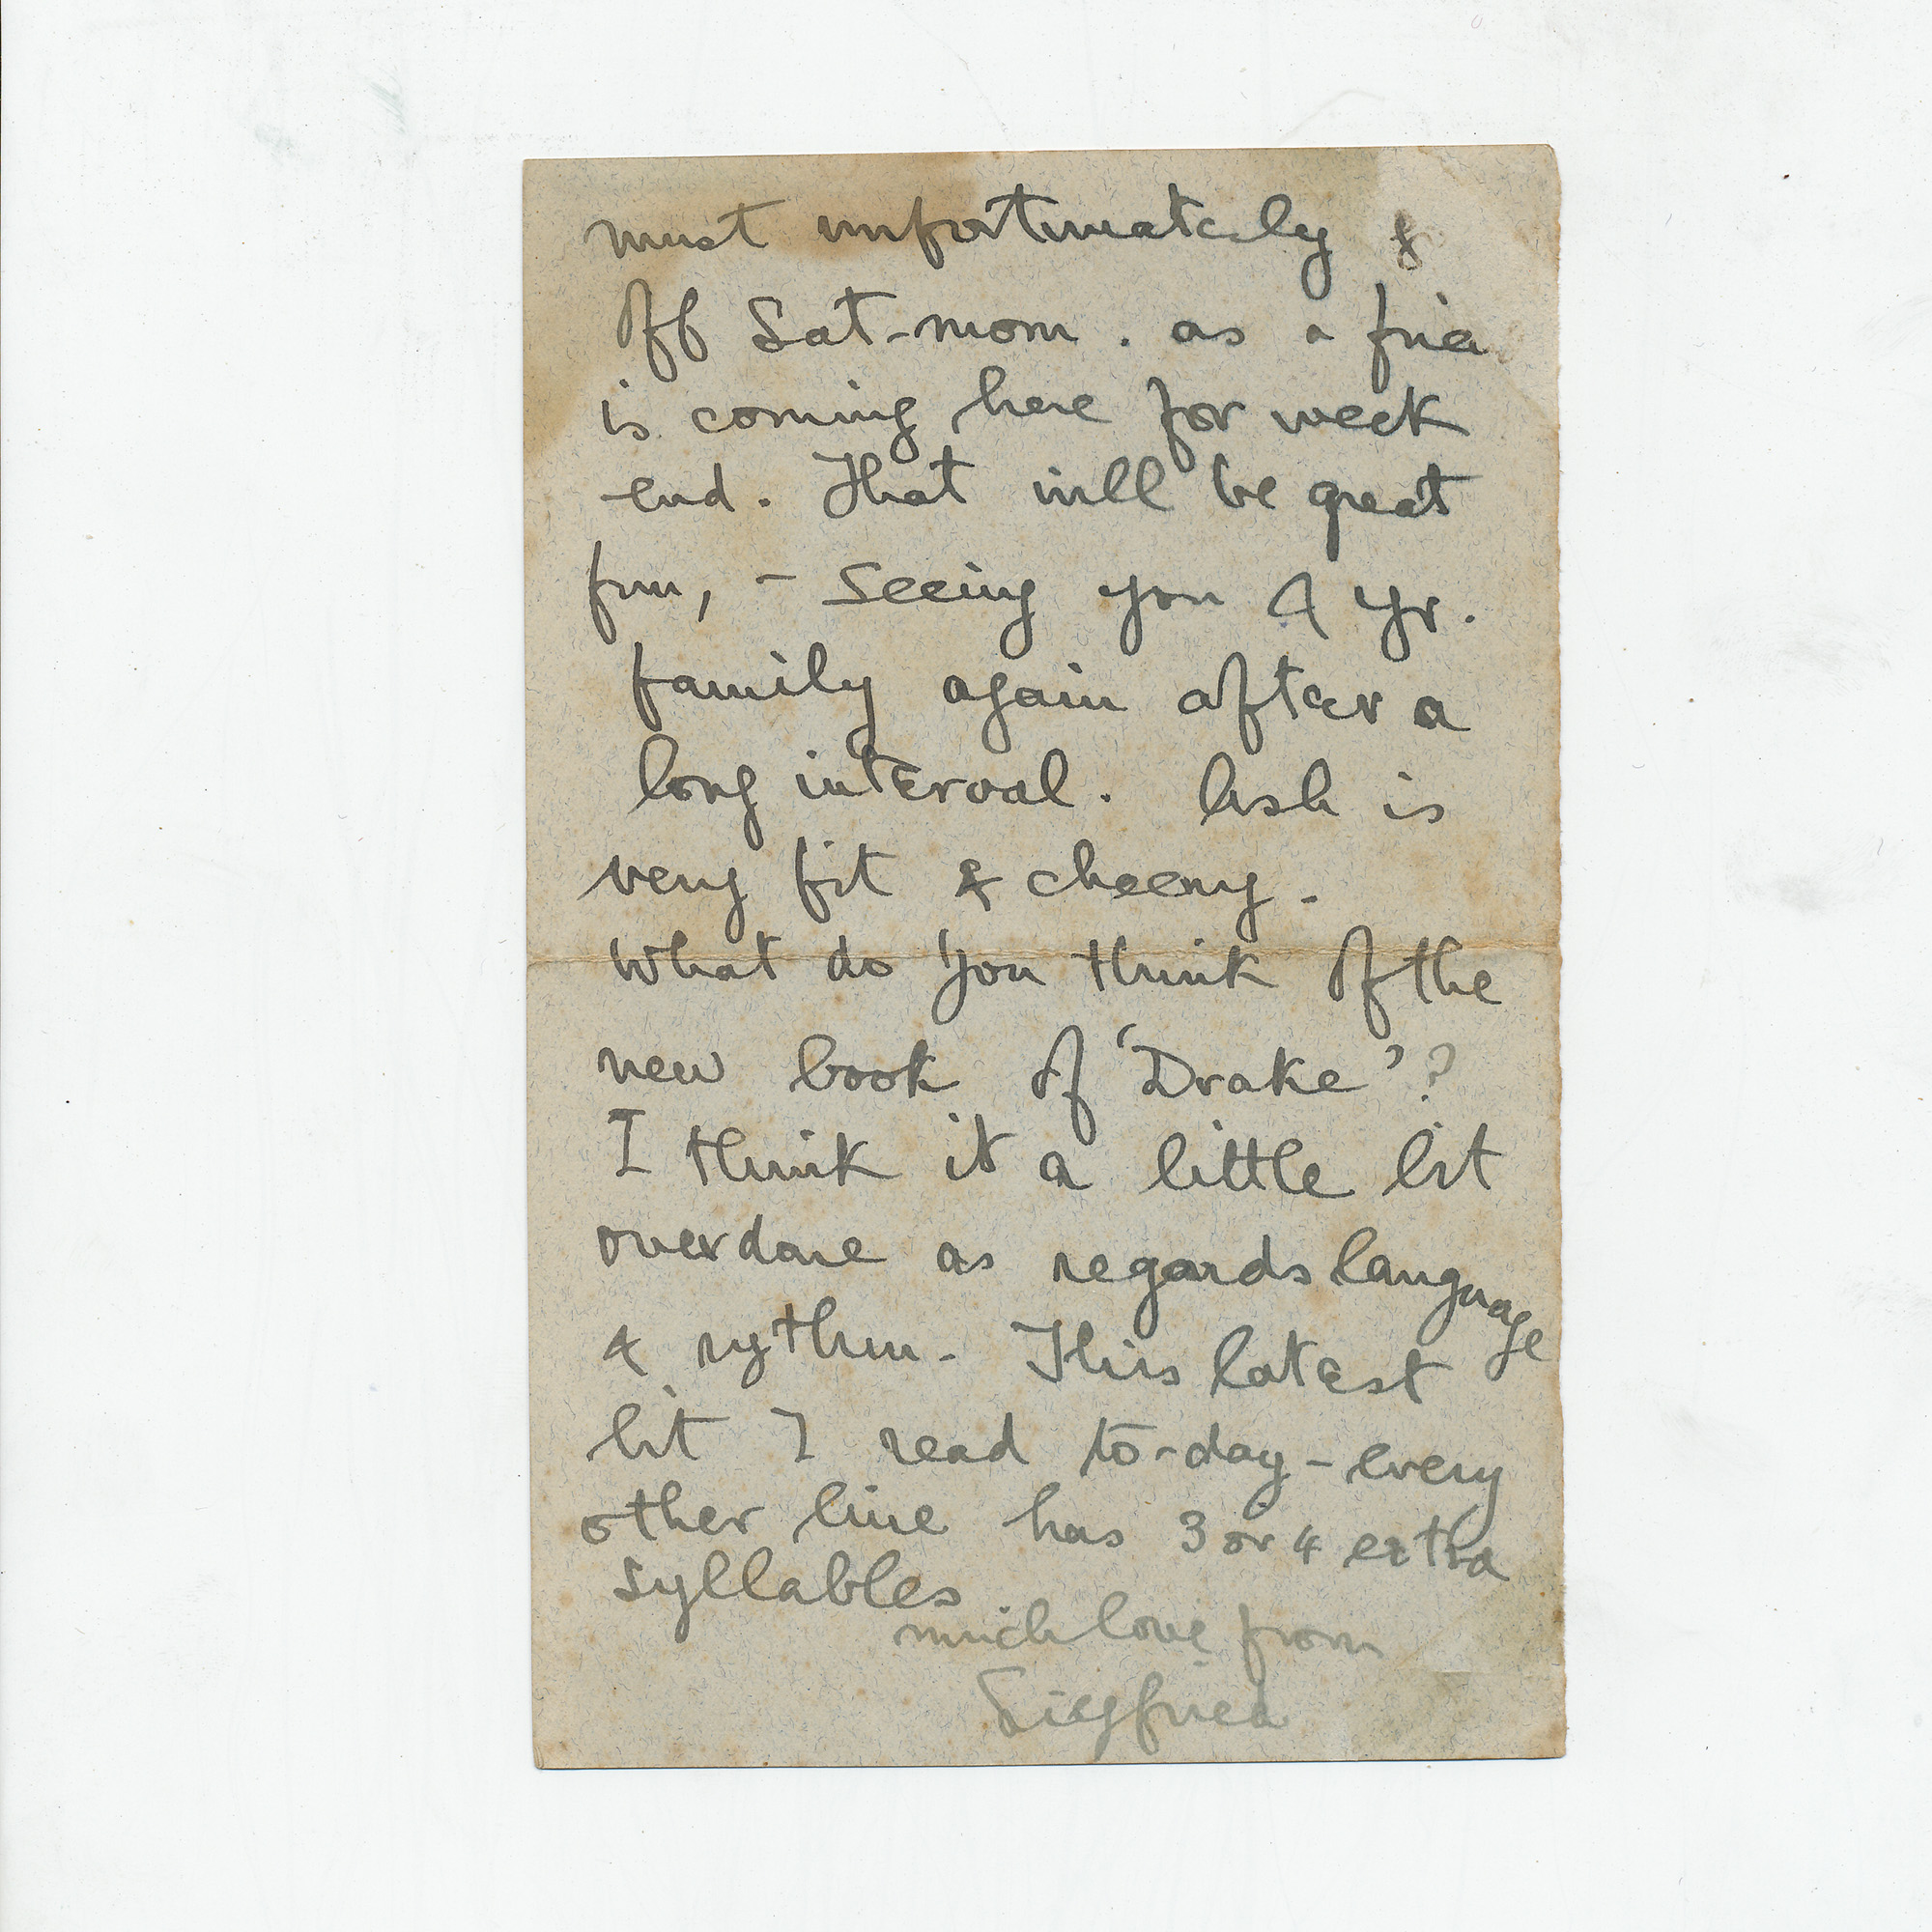 must unfortunately
off Sat-morn. as a frie
is coming here for week
end. That will be great
fun, - seeing you & yr.
family again after a
long interval. Ash is
very fit & cheery.
What do you think of the
new book of 'Drake'?
I think it a little bit
overdone as regards language
& rythm. This latest
bit I read to-day - every
other line has 3 or 4 extra
syllables.
much love from
Siegfried